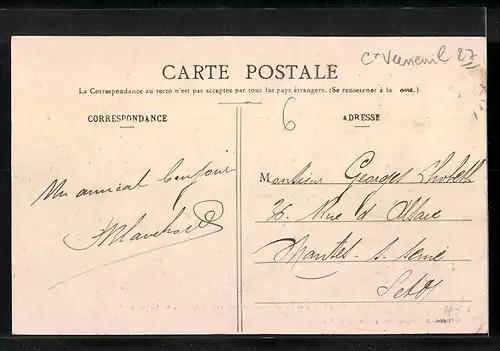 Cᵗᵉ Verneuil 27
CARTE POSTALE
La Correspondance au recto n'est pas acceptée par tous les pays étrangers. (Se renseigner à la oste.)
6
CORRESPONDANCE
ADRESSE
Un amical bonjour
Monsieur Georges
36, Rue d'Alsace
Mantes-s-Seine
S et O